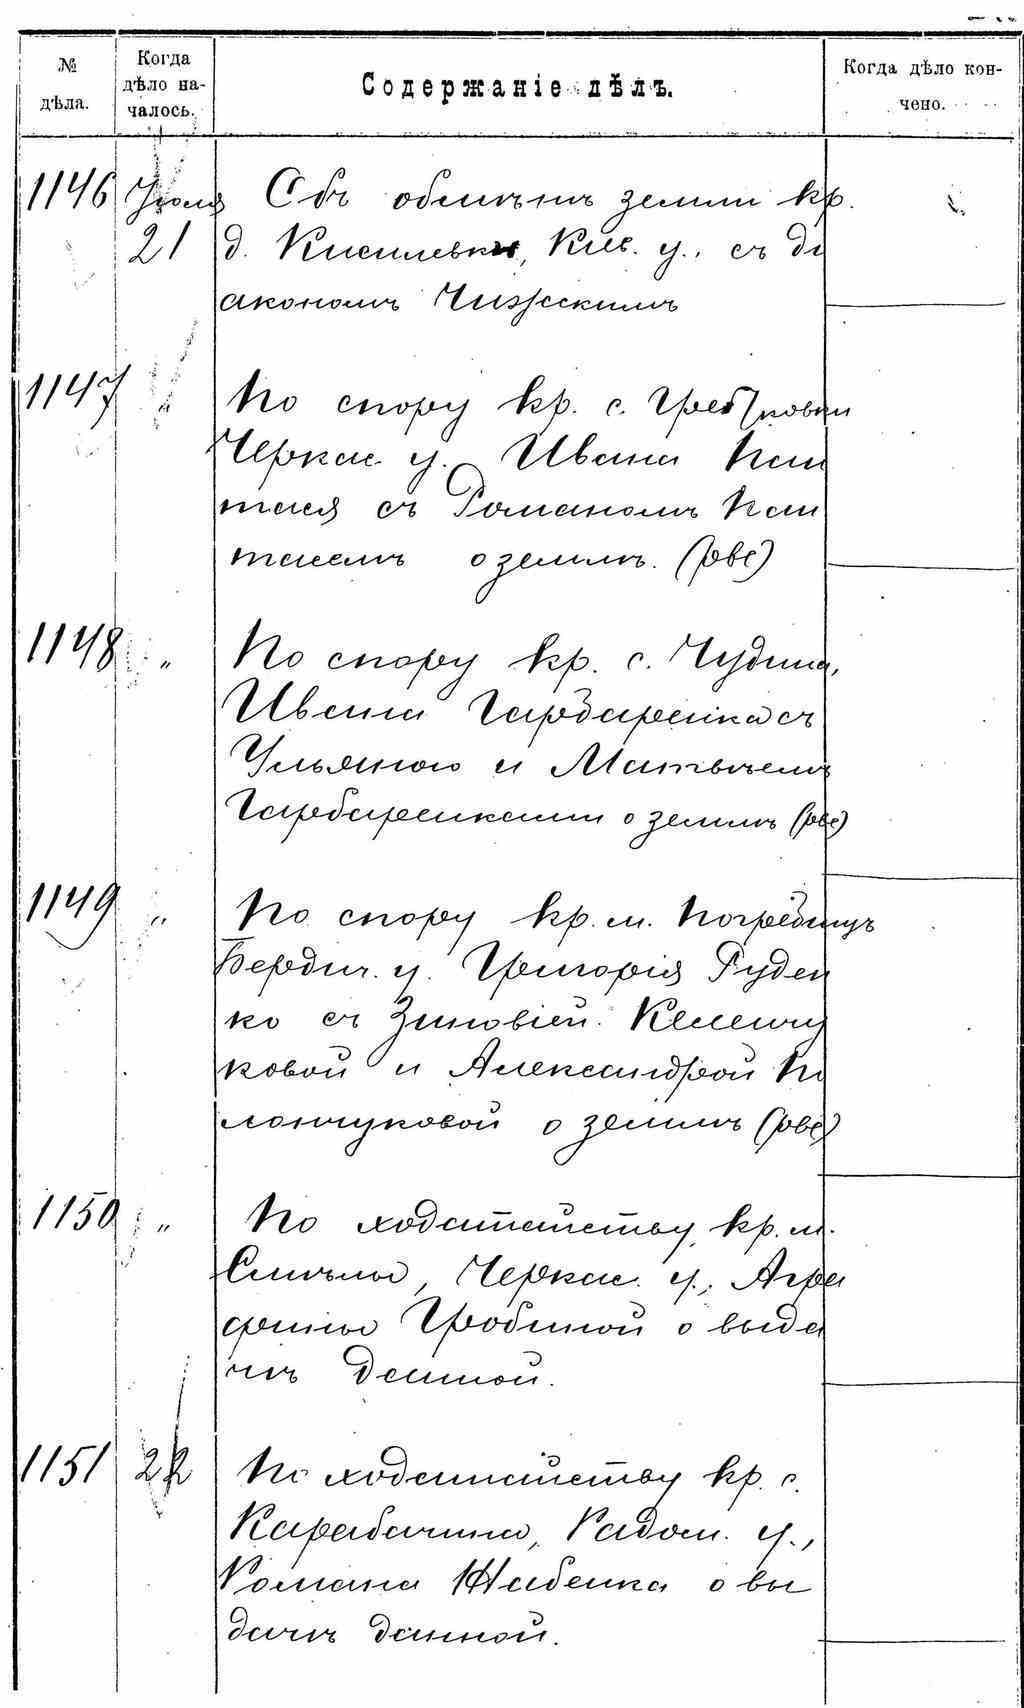 № дѣла.
Когда дѣло на-
чалось.
Содержаніе дѣлъ.
Когда дѣло кон-
чено.
1146 Июля Объ обмѣнѣ земли кр.
21 д. Киселевки, Кіев. у., съ ді
акономъ Чижскимъ
1147 " По спору кр. с. Гребѣновки
Черкас. у. Ивана Пан
тася съ Романомъ Пан
тасемъ о землѣ. (рвс)
1148 " По спору кр. с. Чудина,
Ивана Гарбаренка съ
Ульяною и Матвѣемъ
Гарбаренками о землѣ (рвс)
1149 " По спору кр. м. Погребищъ
Бердич. у. Григорія Руден
ко съ Зиновіей Келемчу
ковой и Александрой По
лончуковой о землѣ (рвс)
1150 " По ходатайству кр. м.
Смѣлы, Черкас. у., Агра
фены Гробиной о выда
чѣ данной.
1151 22 По ходатайству кр. с.
Карабачина, Радом. у.,
Романа Жабенка о вы
дачѣ данной.